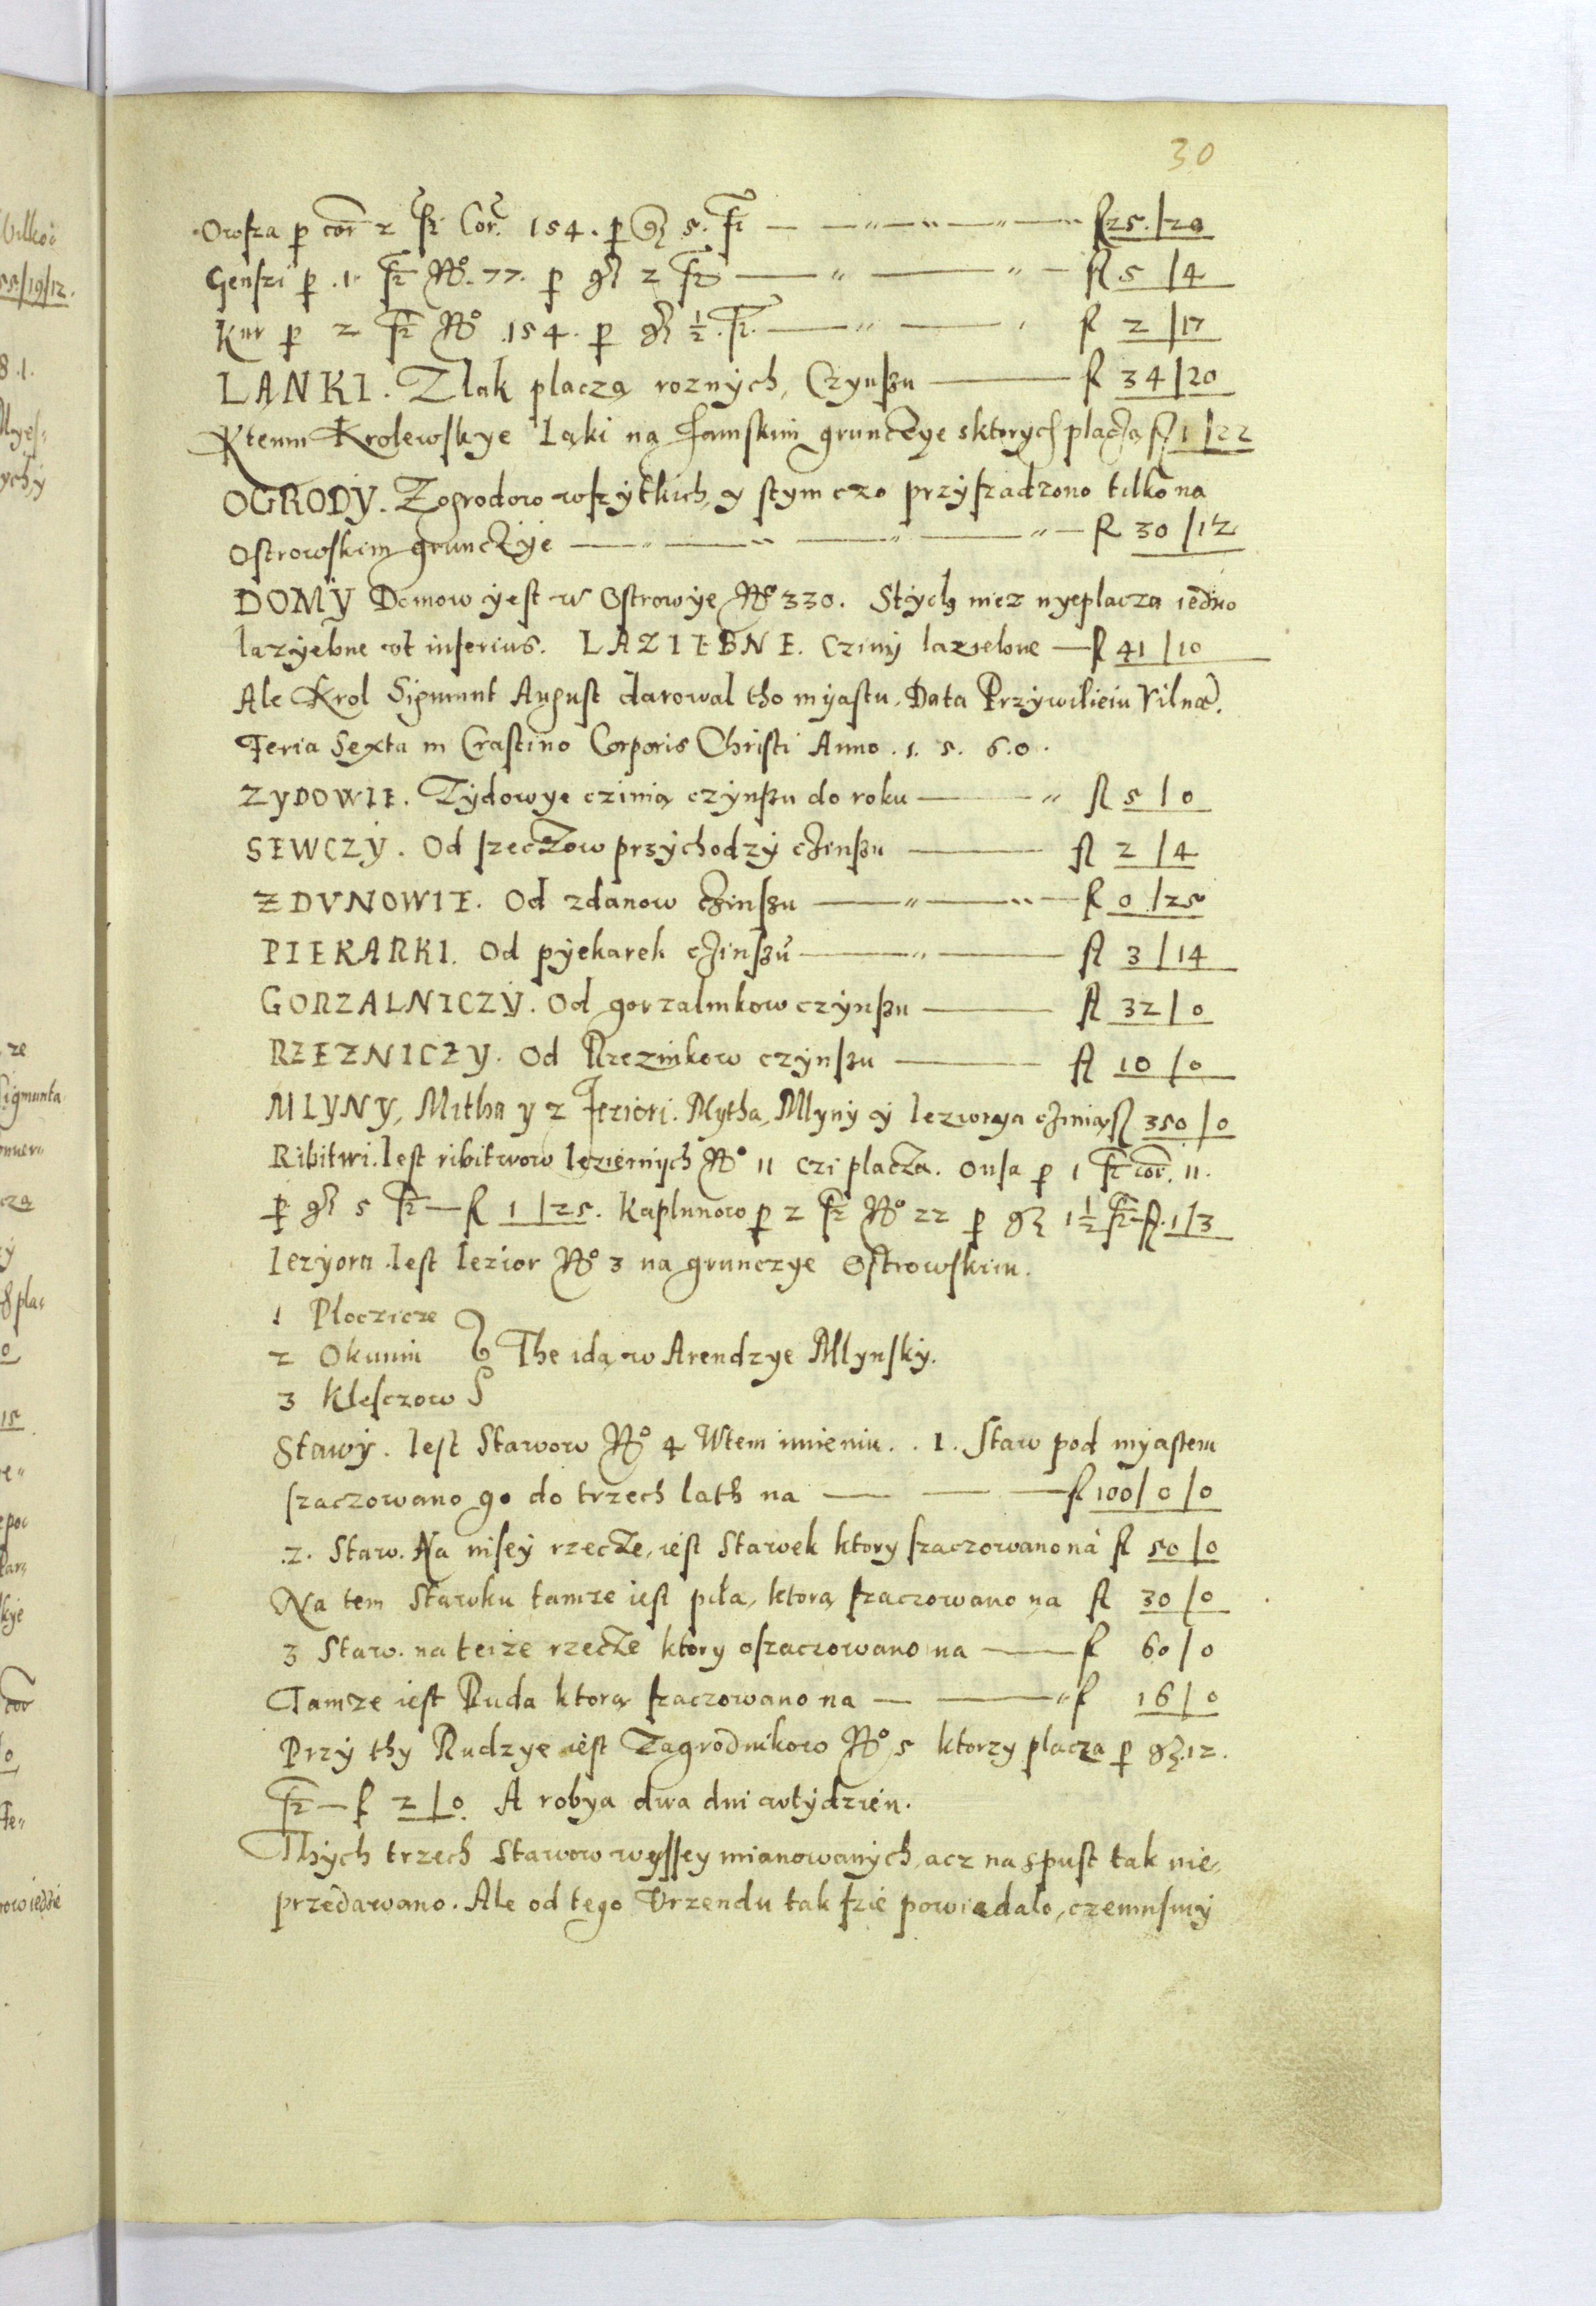 30
Owsza p cor 2 fr Cor. 154. p g 5. Fr — — — — — fl 25./20
Genszi p .1. fr No. 77. p gr 2 fr — — — fl 5 /4
Kur p 2 fr No 154. p gr ½. Fr. — — fl 2 /17
LANKI. Z lak placzą roznych, Czynszu — fl 34 /20
Ktemu Krolewskye Ląki ną Jamskim gruncżye sktorych placzą fl 1 /22
OGRODY. Zogrodow wszytkich, y stym czo przyszadzono tilko na
Ostrowskim gruncżye — — — — fl 30 /12
DOMY Domow yest w Ostrowye No 330. Stych niez nyeplacza iedno
lazyebne vt inferius. LAZIEBNE. Cziny laziebne — fl 41 /10
Ale Krol Sigmunt August darowal tho myastu, Data Przywilieiu Vilnæ.
Feria Sexta in Crastino Corporis Christi Anno .1. 5. 6.0.
ZYDOWIE. Zydowye czinią czynszu do roku — fl 5 /0
SEWCZY. Od szeczow przychodzy czinszu — fl 2 /4
ZDVNOWIE. Od zdanow czinszu — — fl 0 /25
PIEKARKI. Od pyekarek czinszu — — fl 3 /14
GORZALNICZY. Od gorzalnikow czynszu — fl 32 /0
RZEZNICZY. Od Rzeznikow czynszu — fl 10 /0
MLYNY, Mitha y z Jeziori. Mytha, Mlyny y Ieziorya czinią fl 350 /0
Ribitwi. Iest ribitwow Ieziernych No 11 czi placza. Owsa p 1 fr cor. 11.
p gr 5 fr — fl 1 /25. Kaplunow p 2 fr No 22 p gr 1½ fr — fl. 1 /3
Iezyora. Iest Iezior No 3 na grunczye Ostrowskim.
1 Płoczicze
2 Okunin The idą w Arendzye Mlynsky.
3 Klesczow
Stawy. Iest Stawow No 4 Wtem imieniu. . 1. Staw pod myastem
szaczowano go do trzech lath na — — — fl 100/ 0 /0
.2. Staw. Na nisey rzecze, iest Stawek ktory szaczowano na fl 50 /0
Na tem Stawku tamze iest piła, ktorą szaczowano na fl 30 /0
3 Staw. na teize rzecze ktory oszaczowano na — fl 60 /0
Tamze iest Ruda ktorą szaczowano na — — fl 16 /0
Przy thy Rudzye iest Zagrodnikow No 5 ktorzy placza p gr. 12.
fr — fl 2 /0. A robya dwa dni wtydzien.
Thych trzech Stawow wyssey mianowanych, acz na spust tak nie,
przedawano. Ale od tego Vrzendu tak szie powiedalo, czemusmy